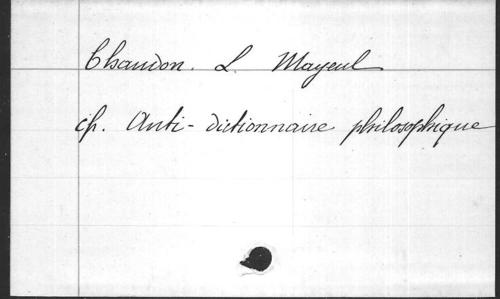 Chaudon. L. Mayeul
cfr. Anti-dictionnaire philosophique